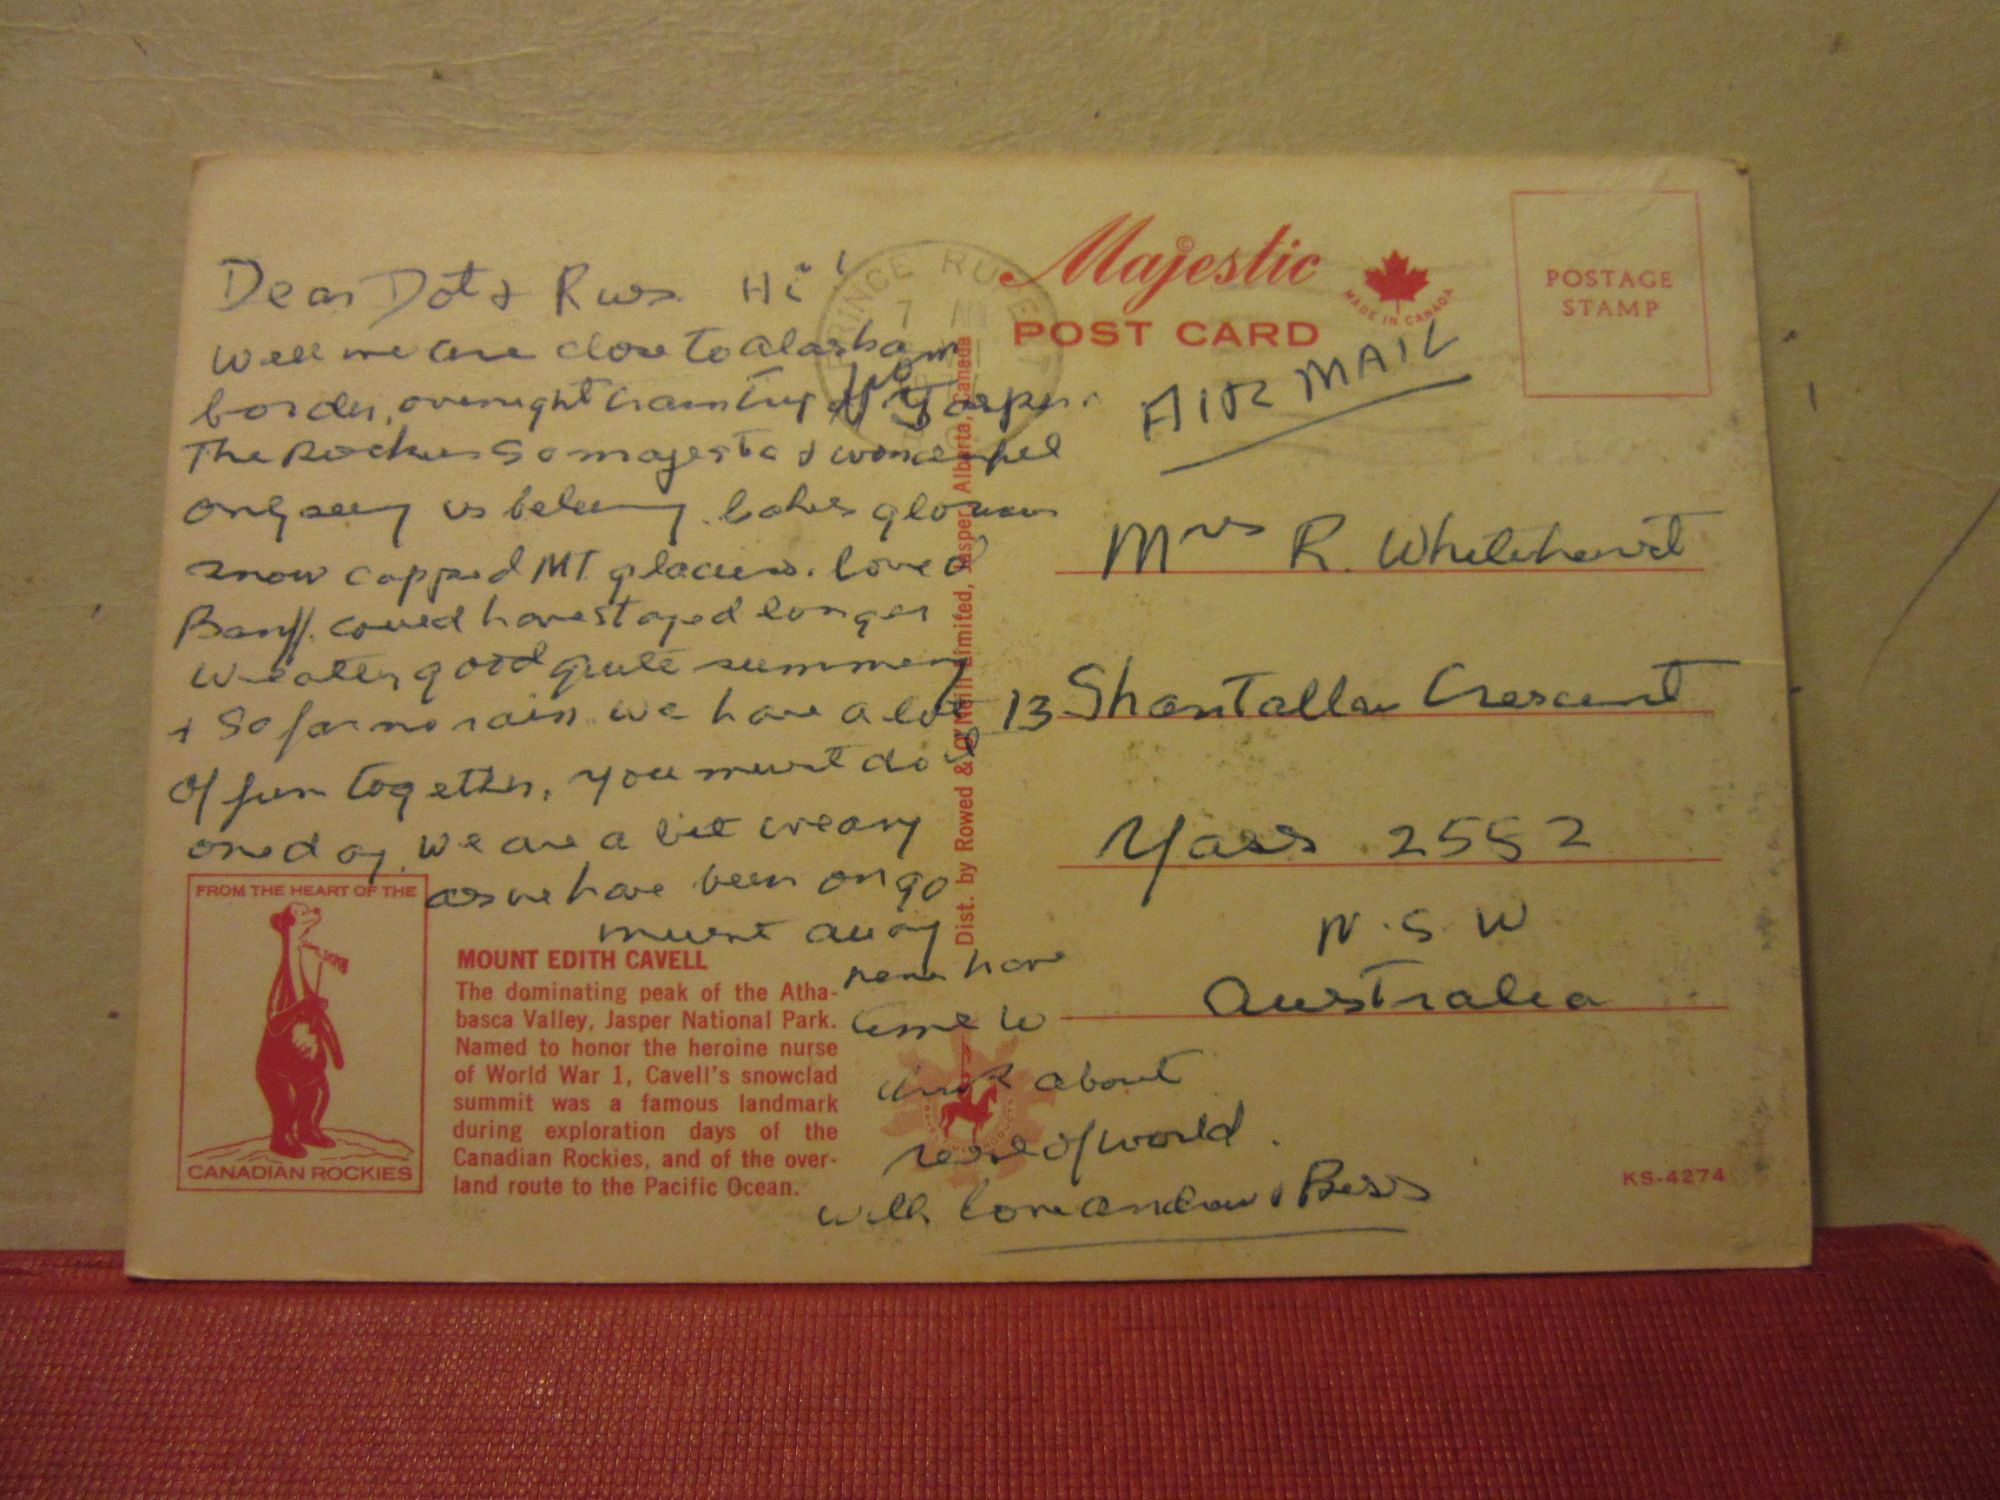 Dear Dot & Russ Hi!
Well we are close to Alaska
border, overnight train trip from Jasper.
The Rockies so majestic & wonderful
only seeing is believing. Lakes glorious
snow capped MT. glaciers. loved
Banff. could have stayed longer
Weather good quite summery
& So far no rain. We have a lot
of fun together, you must do it
one day. We are a bit weary
as we have been on go
must away
here have
time to
think about
rest of world.
with love Andrew & Bess
PRINCE RUPERT
7 AM
Majestic
POST CARD
MADE IN CANADA
POSTAGE
STAMP
AIR MAIL
Mrs R. Whitehurst
13 Shantalla Crescent
Yass 2582
N.S.W
Australia
Dist. by Rowed & O'Neill Limited, Jasper, Alberta, Canada
FROM THE HEART OF THE
CANADIAN ROCKIES
MOUNT EDITH CAVELL
The dominating peak of the Atha-
basca Valley, Jasper National Park.
Named to honor the heroine nurse
of World War 1, Cavell's snowclad
summit was a famous landmark
during exploration days of the
Canadian Rockies, and of the over-
land route to the Pacific Ocean.
KS-4274